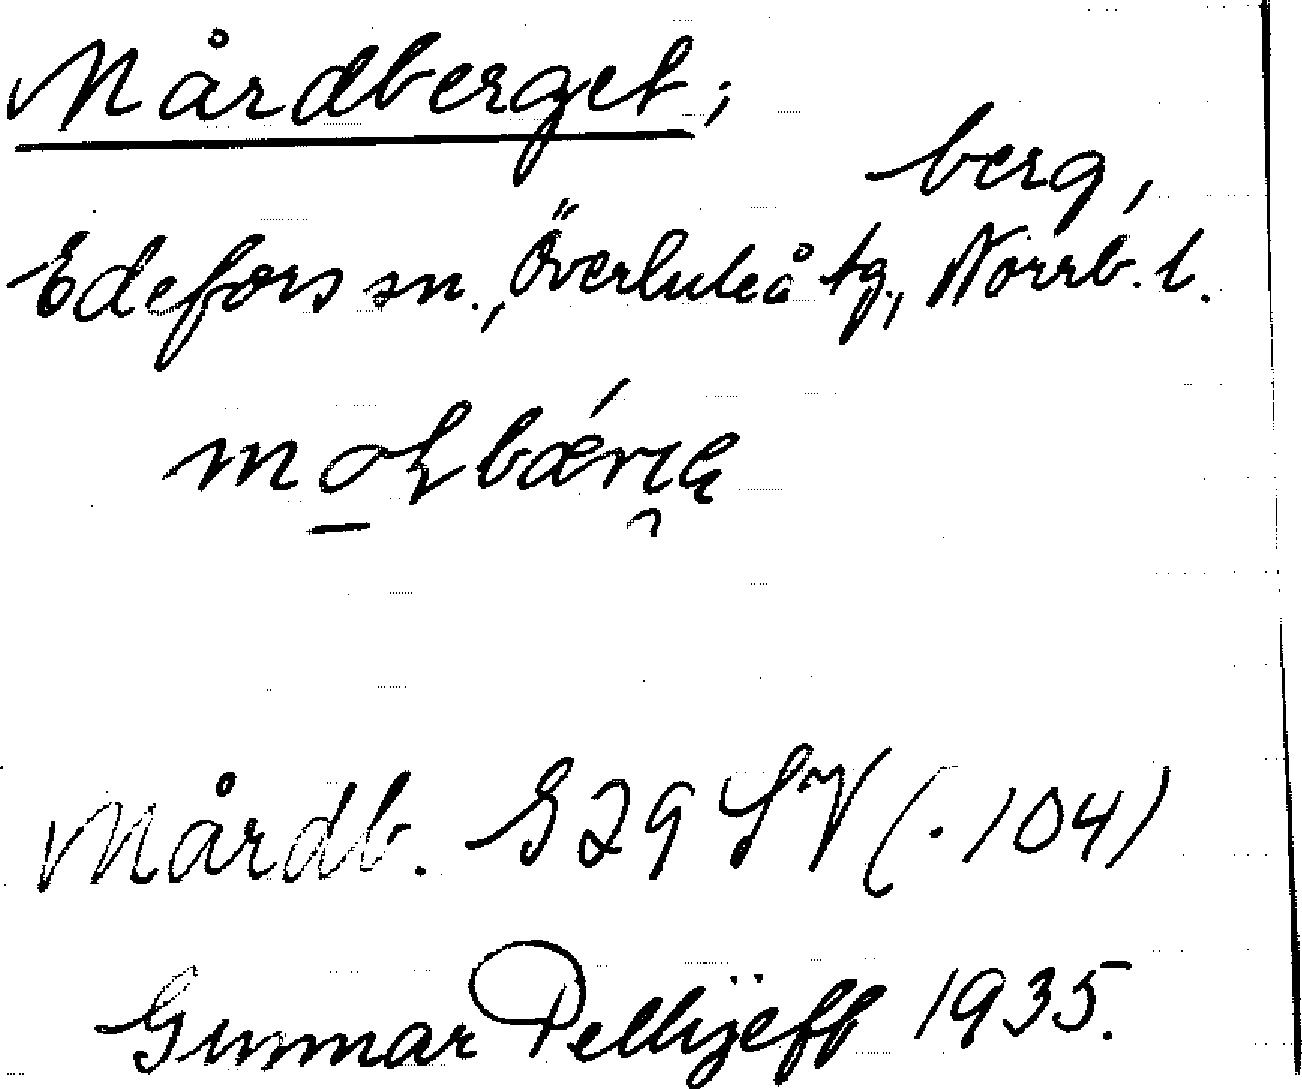 Mårdberget;
berg,
Edefors sn., Överluleå tg., Norrb. l.
Mårdb. G 29 SV (. 104)
Gunnar Pellijeff 1935.